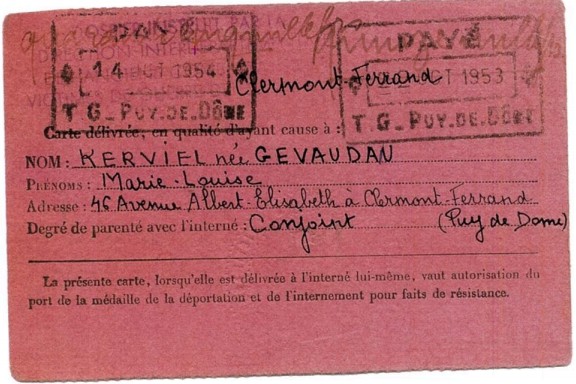 PAYÉ
14 OCT 1954
T.G_PUY.DE.DÔME
PAYÉ
OCT 1953
T.G_PUY.DE.DÔME
Clermont-Ferrand
Carte délivrée, en qualité d'ayant cause à :
NOM : KERVIEL née GEVAUDAN
PRÉNOMS : Marie-Louise
Adresse : 46 Avenue Albert-Elisabeth à Clermont-Ferrand
Degré de parenté avec l'interné : Conjoint (Puy de Dome)
La présente carte, lorsqu'elle est délivrée à l'interné lui-même, vaut autorisation du
port de la médaille de la déportation et de l'internement pour faits de résistance.